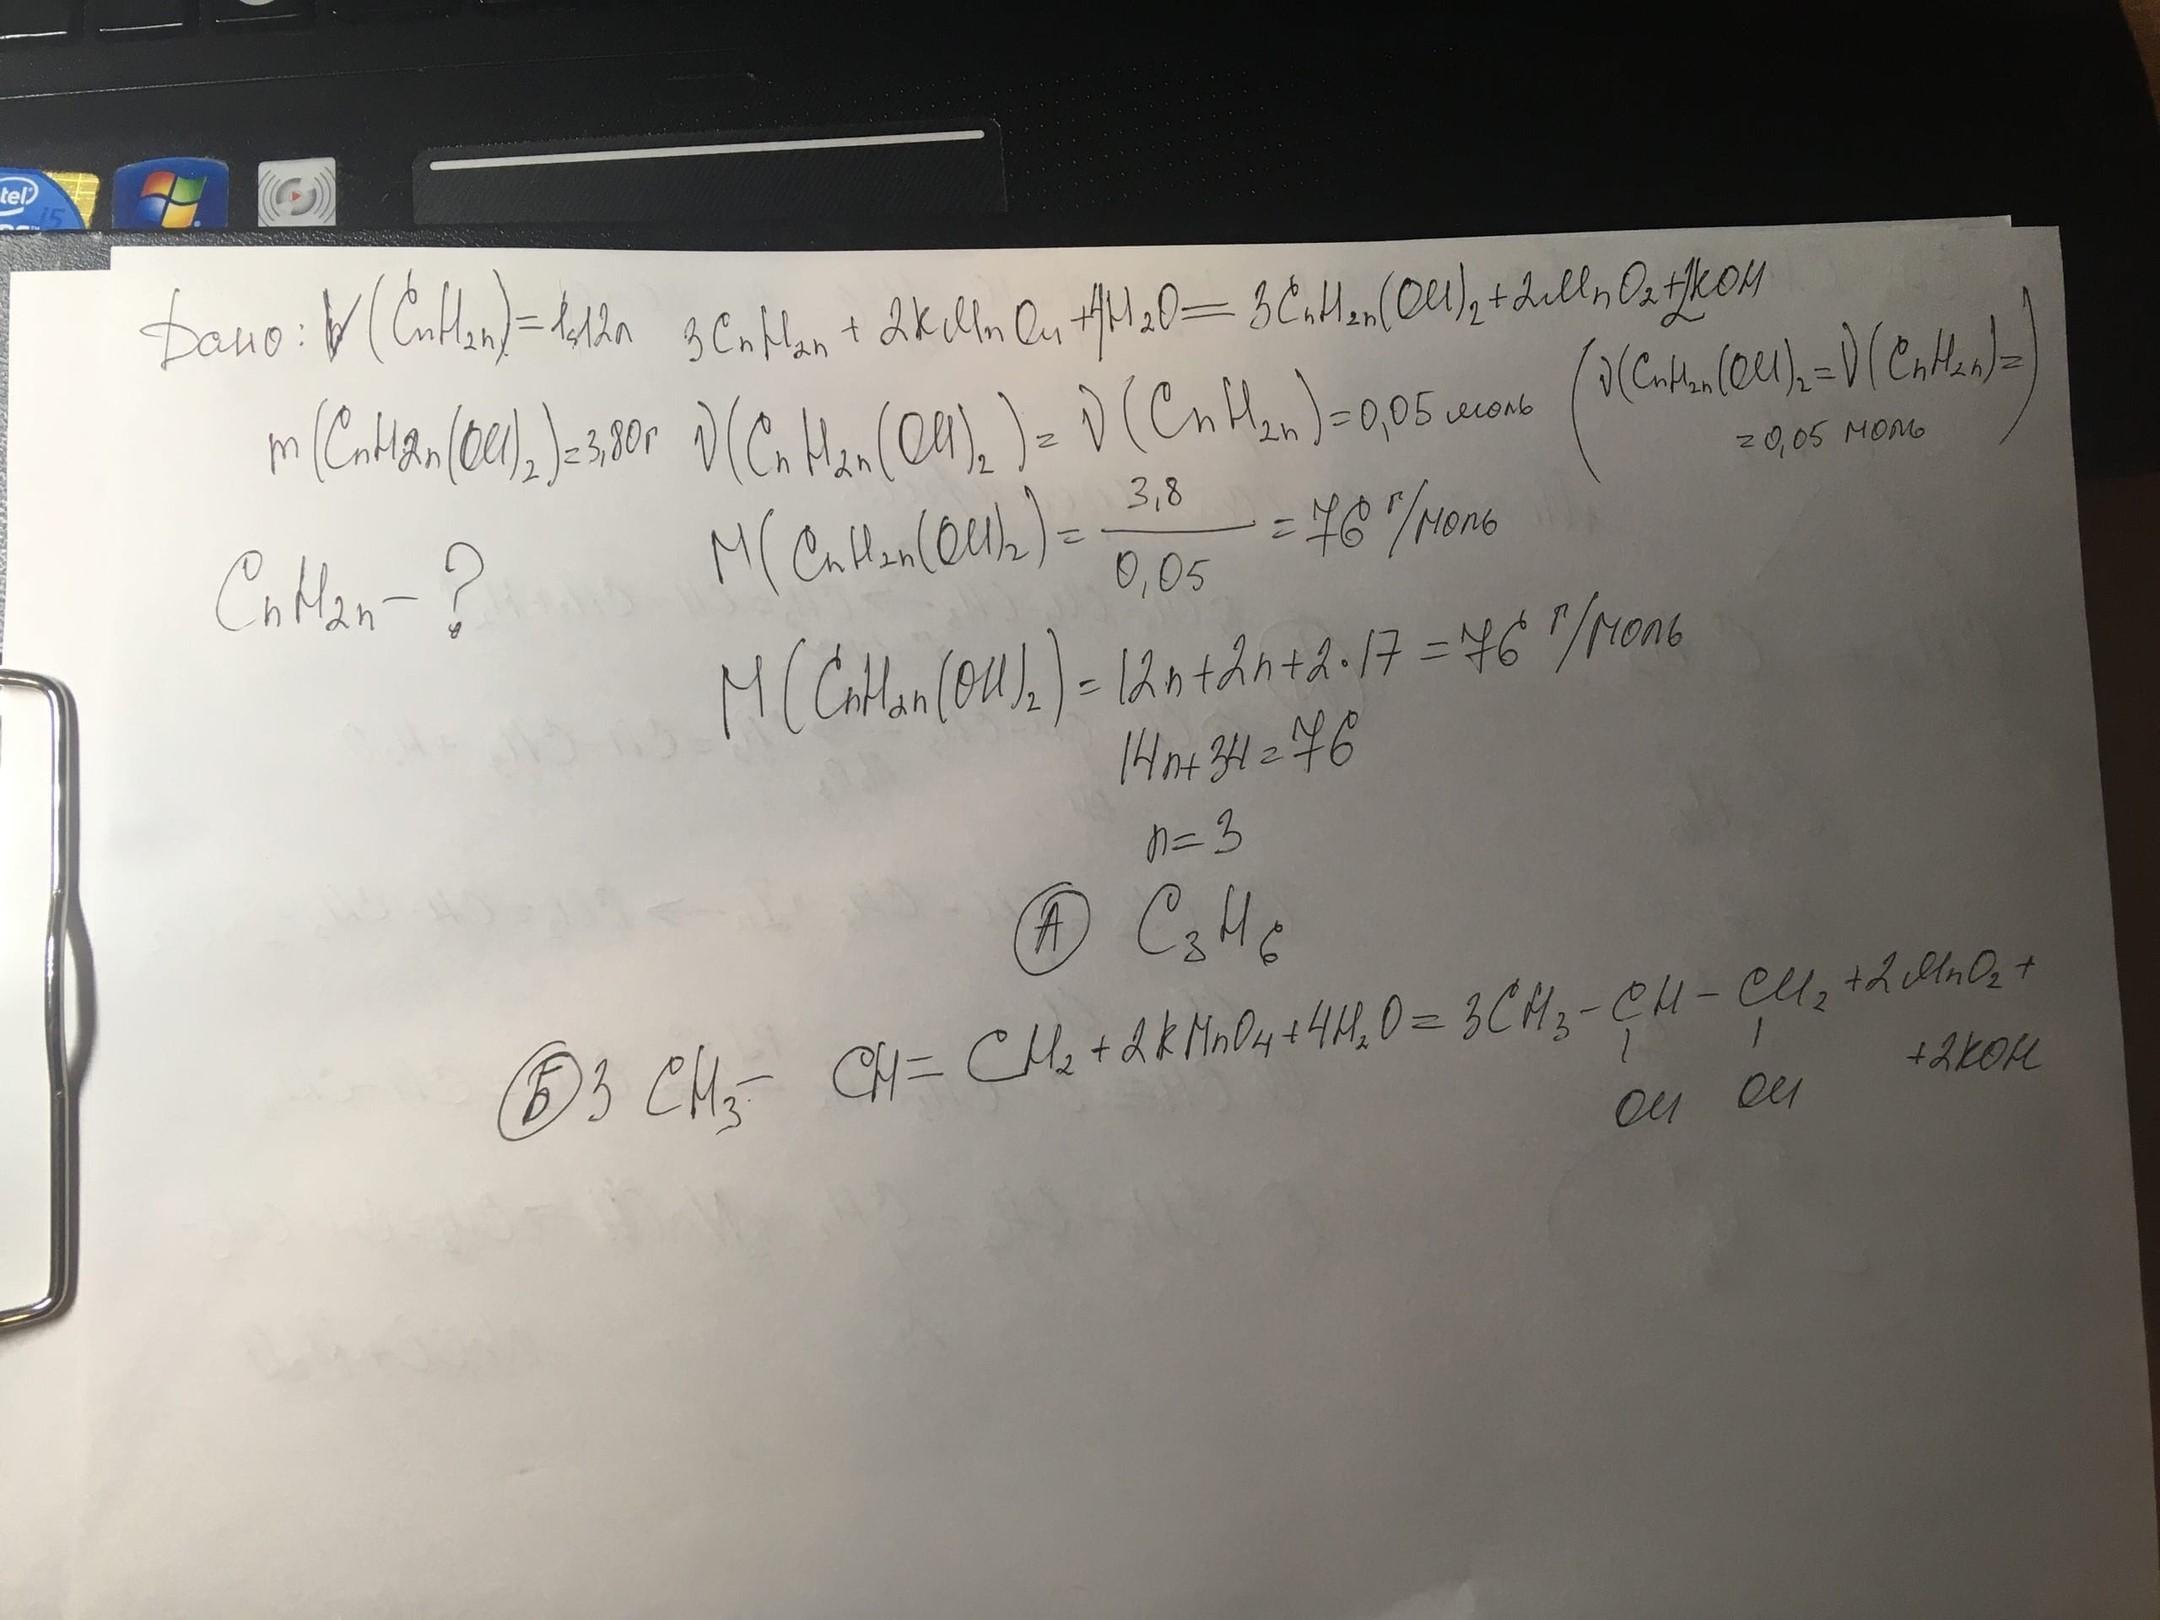 tel)
i5
Дано: V(CnH2n)=1,12л 3CnH2n + 2KMnO4 + 4H2O = 3CnH2n(OH)2 + 2MnO2 + 2KOH
m(CnH2n(OH)2)=3,80г ν(CnH2n(OH)2) = ν(CnH2n)=0,05 моль (ν(CnH2n(OH)2=ν(CnH2n)=
=0,05 моль)
M(CnH2n(OH)2)= 3,8/0,05 = 76 г/моль
CnH2n - ?
M(CnH2n(OH)2)= 12n+2n+2·17 = 76 г/моль
14n+34=76
n=3
А C3H6
Б 3 CH3- CH= CH2 + 2KMnO4 + 4H2O = 3CH3-CH-CH2 + 2MnO2 +
+2KOH
OH OH